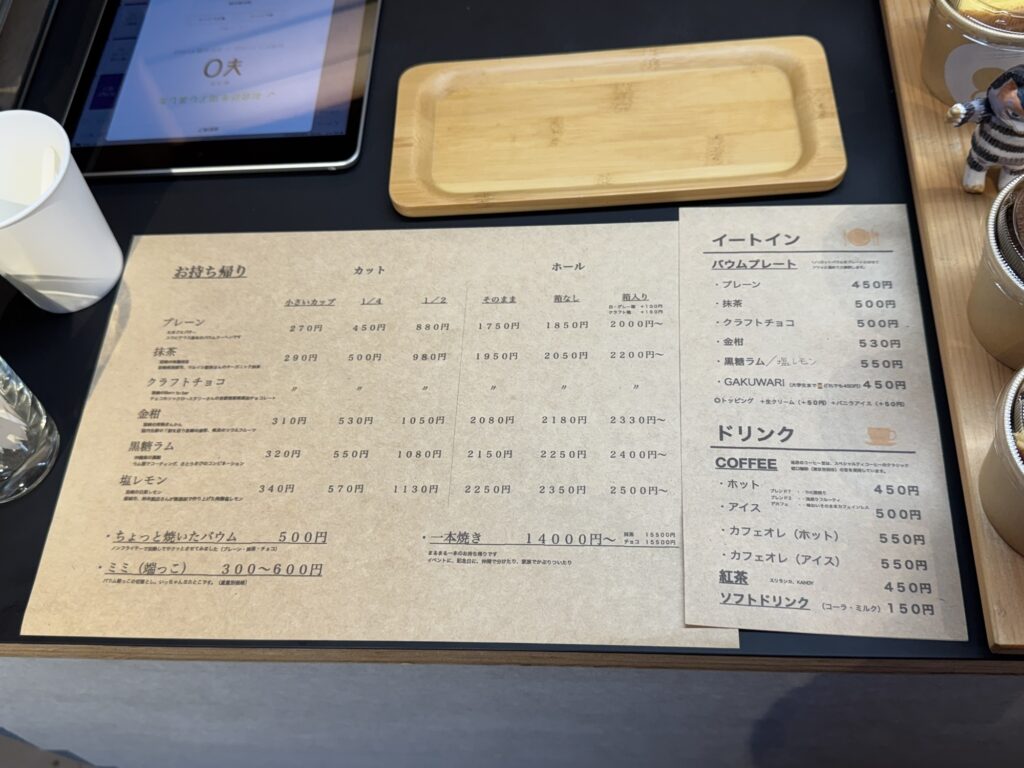 お持ち帰り カット ホール
小さいカップ 1/4 1/2 そのまま 箱なし 箱入り
プレーン 270円 450円 880円 1750円 1850円 2000円〜
抹茶 290円 500円 980円 1950円 2050円 2200円〜
クラフトチョコ 〃 〃 〃 〃 〃 〃
金柑 310円 530円 1050円 2080円 2180円 2330円〜
黒糖ラム 320円 550円 1080円 2150円 2250円 2400円〜
塩レモン 340円 570円 1130円 2250円 2350円 2500円〜
・ちょっと焼いたバウム 500円
・ミミ（端っこ） 300〜600円
・一本焼き 14000円〜 抹茶 15500円
チョコ 15500円
まるまる一本のお持ち帰りです
イベントに、記念日に、仲間で分けたり、家族でかぶりついたり
イートイン
バウムプレート
・プレーン 450円
・抹茶 500円
・クラフトチョコ 500円
・金柑 530円
・黒糖ラム／塩レモン 550円
・GAKUWARI（大学生まで どれでも450円）450円
○トッピング ＋生クリーム（＋50円）＋バニラアイス（＋50円）
ドリンク
COFFEE
・ホット 450円
・アイス 500円
・カフェオレ（ホット） 550円
・カフェオレ（アイス） 550円
紅茶 スリランカ、KANDY 450円
ソフトドリンク （コーラ・ミルク）150円